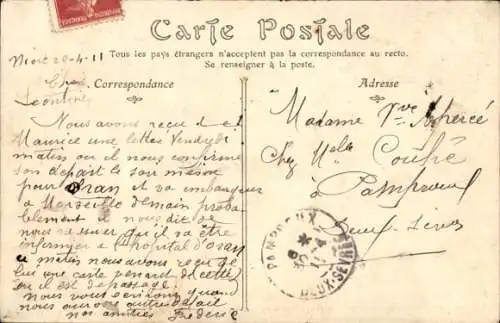 Carte Postale
Tous les pays étrangers n'acceptent pas la correspondance au recto.
Se renseigner à la poste.
Niort 28-4-11
Correspondance
Chère
Léontine
Nous avons reçu de
Maurice une lettre Vendredi
matin ou il nous confirme
son départ le soir même
pour Oran il va embarquer
a Marseille demain proba
blement il nous dit
nous rassurer qu'il va être
infirmier a l'hopital d'Oran
ce matin nous avons reçu de
lui une carte penant de Cette
ou il est de passage.
nous vous écrirons quand
nous aurons autre détail
nos amitiés Frédéric
Adresse
Madame Vve
Chez Melle Couhé
à Pamproux
Deux-Sèvres
PAMPROUX
DEUX-SEVRES